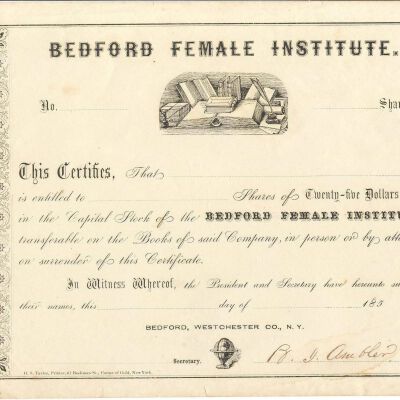 BEDFORD FEMALE INSTITUTE.
No. Sha
This Certifies, That
is entitled to Shares of Twenty-five Dollars
in the Capital Stock of the BEDFORD FEMALE INSTITU
transferable on the Books of said Company, in person or by att
on surrender of this Certificate.
In Witness Whereof, the President and Secretary have hereunto su
their names, this day of 185
BEDFORD, WESTCHESTER CO., N.Y.
Secretary. B. J. Ambler
H. S. Taylor, Printer, 61 Beekman St., Corner of Gold, New York.